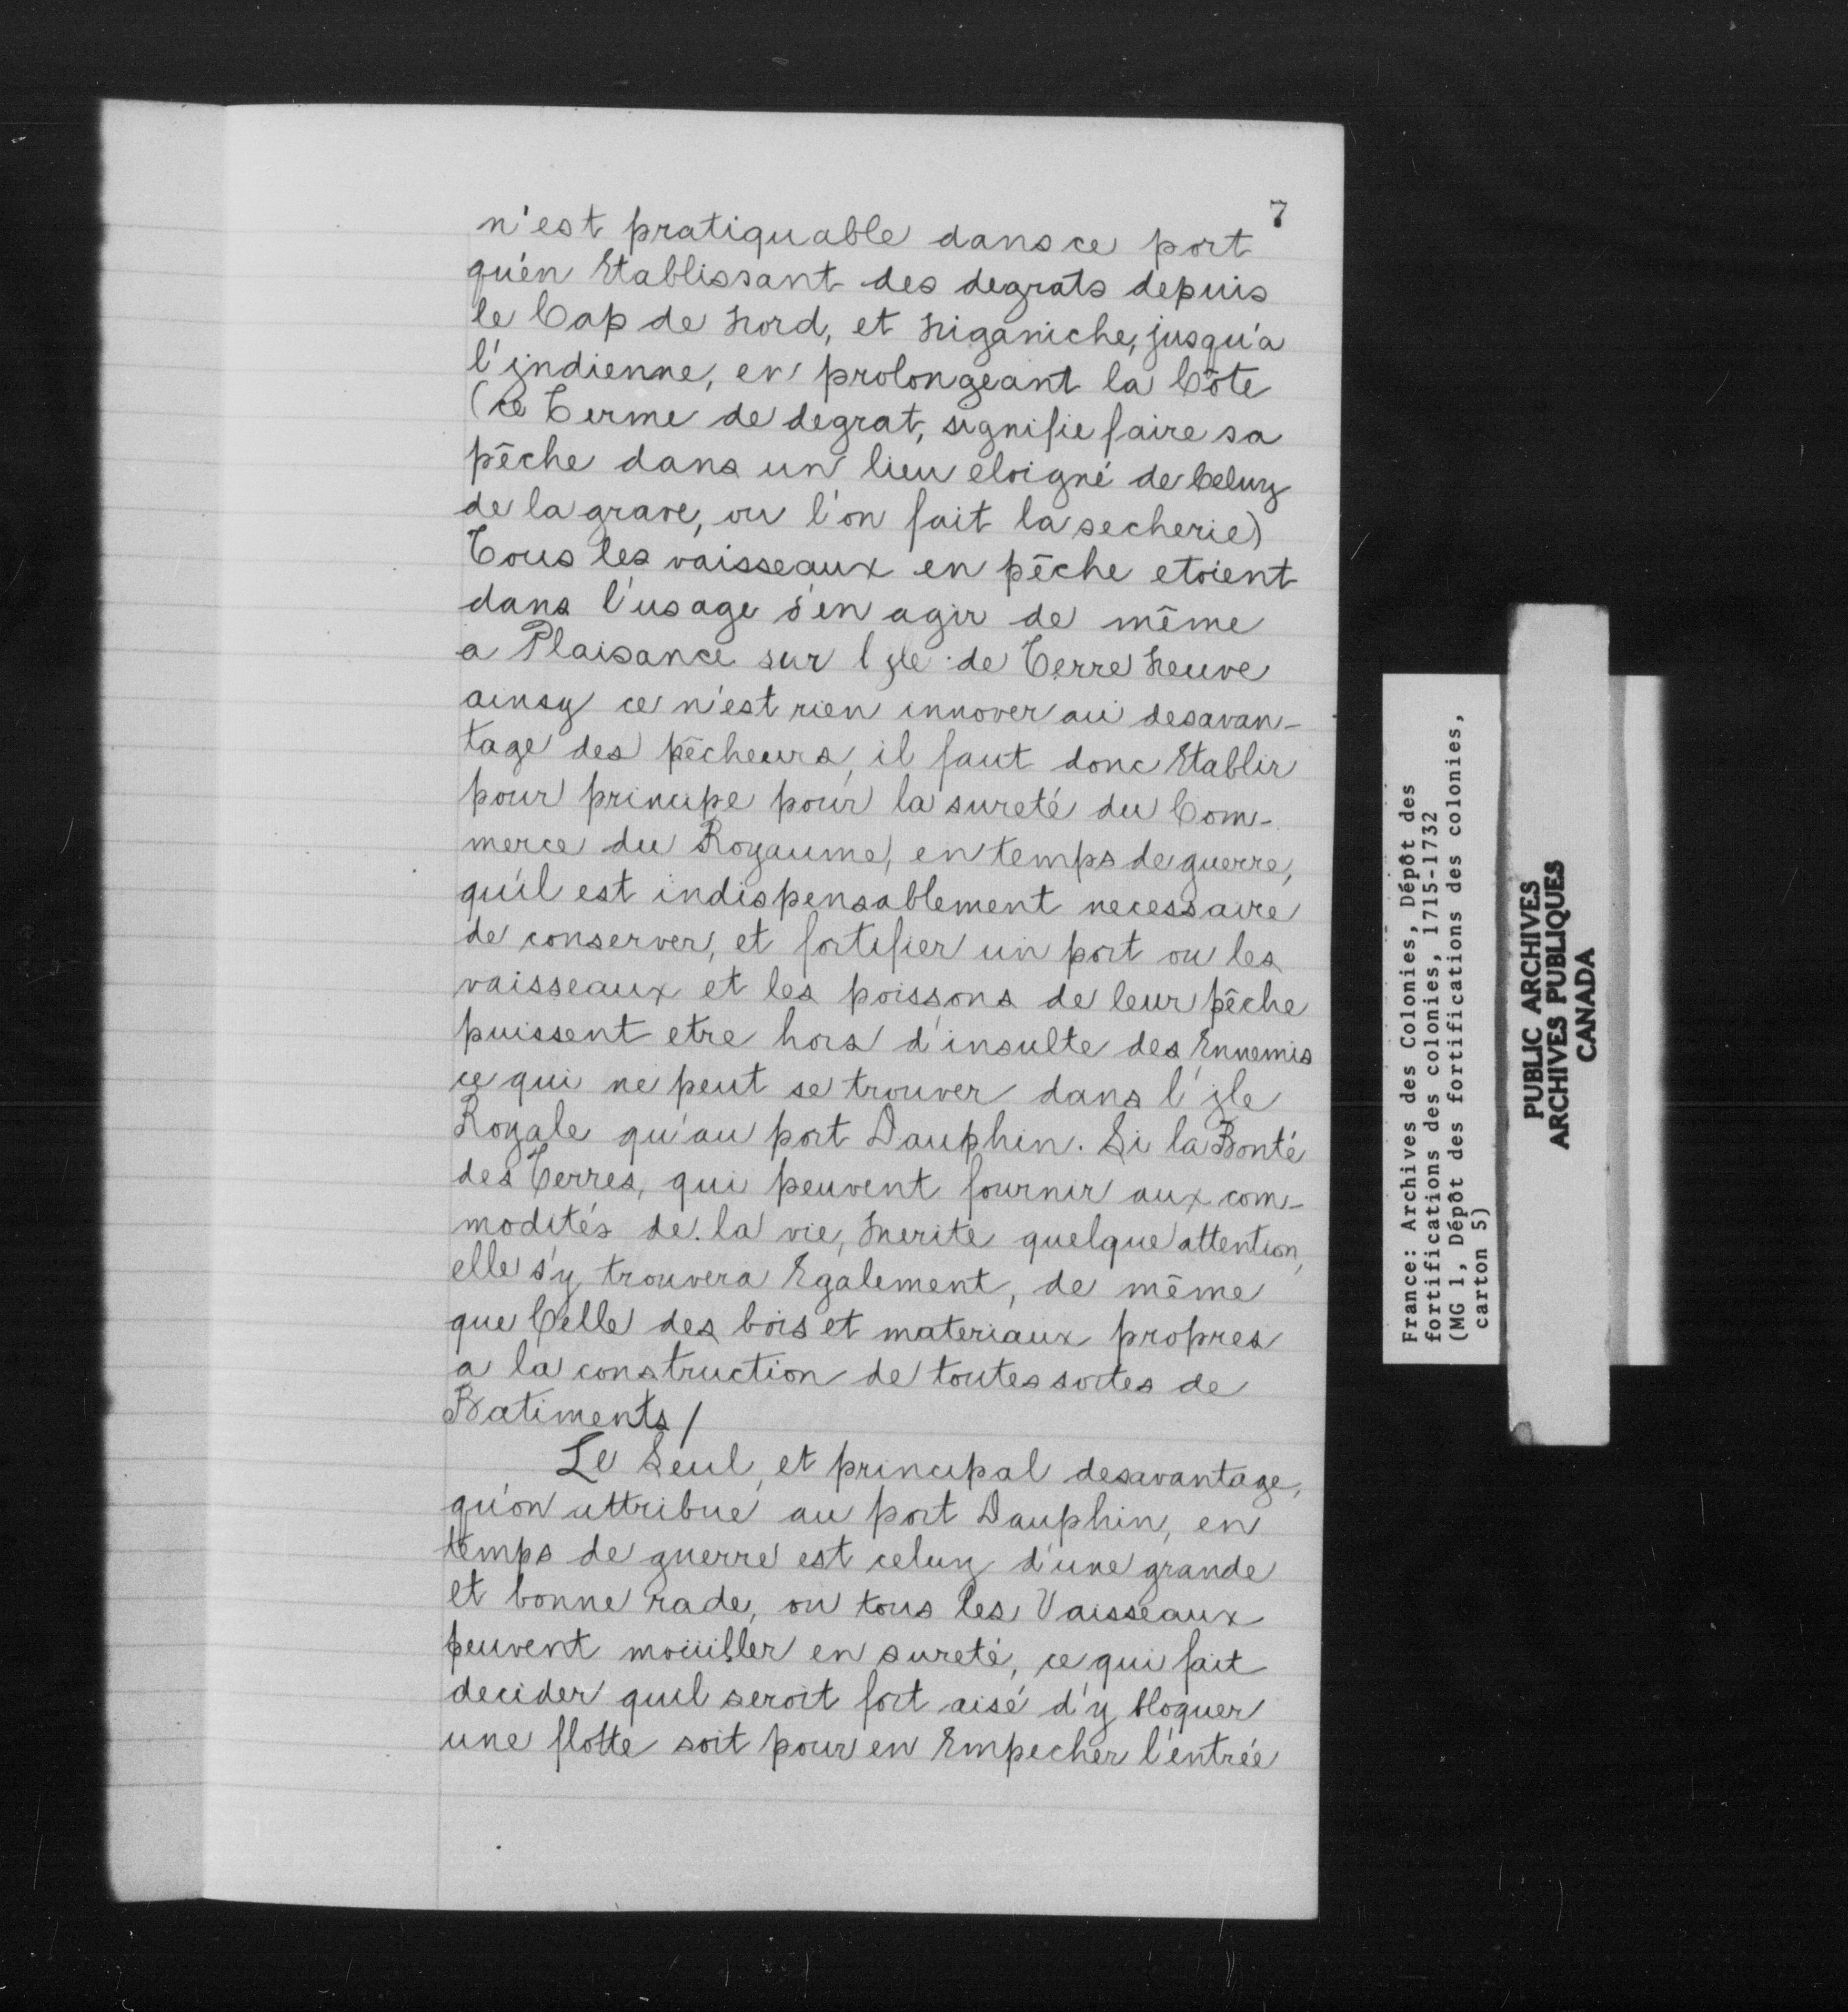 7
n'est pratiquable dans ce port
qu'en Etablissant des degrats depuis
le Cap de Nord, et Niganiche, jusqu'a
l'jndienne, en prolongeant la Côte
(ce Terme de degrat, signifie faire sa
pêche dans un lieu eloigné de Celuy
de la grave, ou l'on fait la secherie)
Tous les vaisseaux en pêche etoient
dans l'usage d'en agir de même
a Plaisance sur l jle de Terre Neuve
ainsy ce n'est rien innover au desavan-
tage des pêcheurs, il faut donc Etablir
pour principe pour la sureté du Com-
merce du Royaume, en temps de guerre,
qu'il est indispensablement necessaire
de conserver, et fortifier un port ou les
vaisseaux et les poissons de leur pêche
puissent etre hors d'insulte des Ennemis
ce qui ne peut se trouver dans l'jle
Royale qu'au port Dauphin. Si la Bonté
des Terres, qui peuvent fournir aux com-
modités de la vie, Merite quelque attention,
elle s'y trouvera Egalement, de même
que Celle des bois et materiaux propres
a la construction de toutes sortes de
Batiments/
Le Seul, et principal desavantage,
qu'on attribue au port Dauphin, en
temps de guerre est celuy d'une grande
et bonne rade, ou tous les Vaisseaux
peuvent moüiller en sureté, ce qui fait
decider quil seroit fort aisé d'y bloquer
une flotte soit pour en Empecher l'entrée
France: Archives des Colonies, Dépôt des
fortifications des colonies, 1715-1732
(MG 1, Dépôt des fortifications des colonies,
carton 5)
PUBLIC ARCHIVES
ARCHIVES PUBLIQUES
CANADA